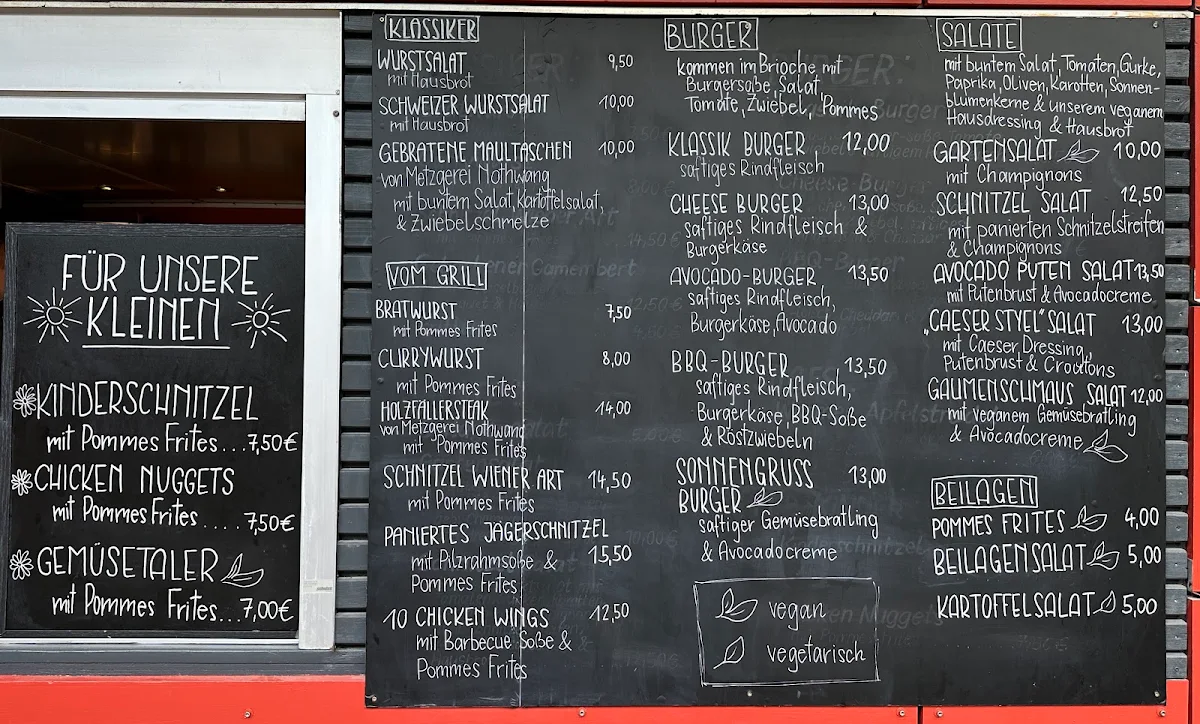 FÜR UNSERE
KLEINEN
KINDERSCHNITZEL
mit Pommes Frites...7,50€
CHICKEN NUGGETS
mit Pommes Frites....7,50€
GEMÜSETALER
mit Pommes Frites...7,00€
KLASSIKER
WURSTSALAT 9,50
mit Hausbrot
SCHWEIZER WURSTSALAT 10,00
mit Hausbrot
GEBRATENE MAULTASCHEN 10,00
von Metzgerei Nothwang
mit buntem Salat, Kartoffelsalat,
& Zwiebelschmelze
VOM GRILL
BRATWURST 7,50
mit Pommes Frites
CURRYWURST 8,00
mit Pommes Frites
HOLZFÄLLERSTEAK 14,00
von Metzgerei Nothwang
mit Pommes Frites
SCHNITZEL WIENER ART 14,50
mit Pommes Frites
PANIERTES JÄGERSCHNITZEL
mit Pilzrahmsoße & 15,50
Pommes Frites
10 CHICKEN WINGS 12,50
mit Barbecue Soße &
Pommes Frites
BURGER
kommen im Brioche mit
Burgersoße, Salat,
Tomate, Zwiebel, Pommes
KLASSIK BURGER 12,00
saftiges Rindfleisch
CHEESE BURGER 13,00
saftiges Rindfleisch &
Burgerkäse
AVOCADO-BURGER 13,50
saftiges Rindfleisch,
Burgerkäse, Avocado
BBQ-BURGER 13,50
saftiges Rindfleisch,
Burgerkäse, BBQ-Soße
& Röstzwiebeln
SONNENGRUSS 13,00
BURGER
saftiger Gemüsebratling
& Avocadocreme
vegan
vegetarisch
SALATE
mit buntem Salat, Tomaten, Gurke,
Paprika, Oliven, Karotten, Sonnen-
blumenkerne & unserem veganem
Hausdressing & Hausbrot
GARTENSALAT 10,00
mit Champignons
SCHNITZEL SALAT 12,50
mit panierten Schnitzelstreifen
& Champignons
AVOCADO PUTEN SALAT 13,50
mit Putenbrust & Avocadocreme
„CAESER STYEL" SALAT 13,00
mit Caeser Dressing,
Putenbrust & Croutons
GAUMENSCHMAUS SALAT 12,00
mit veganem Gemüsebratling
& Avocadocreme
BEILAGEN
POMMES FRITES 4,00
BEILAGENSALAT 5,00
KARTOFFELSALAT 5,00